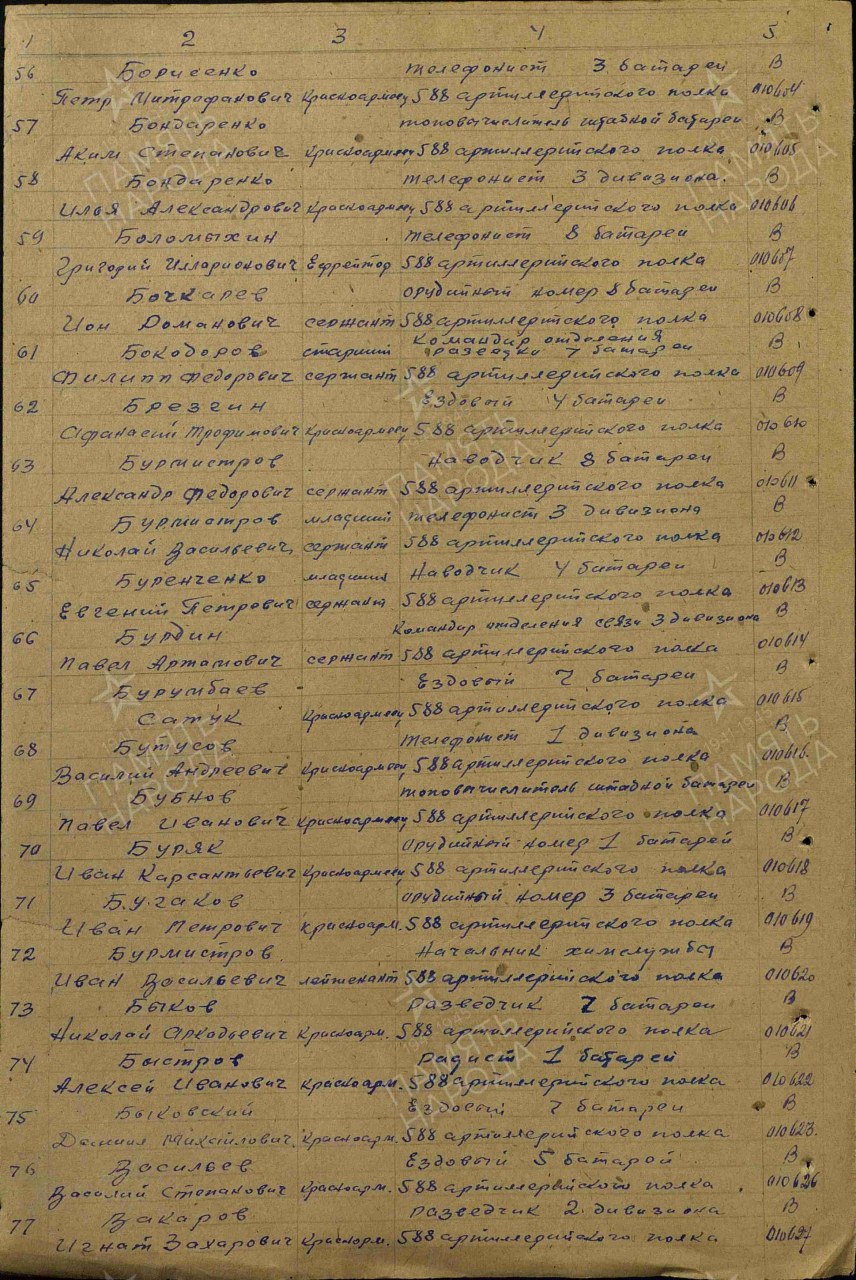 1 2 3 4 5
56 Борисенко телефонист 3 батареи В
Петр Митрофанович красноармеец 588 артиллерийского полка 010604
57 Бондаренко топовычислитель штабной батареи В
Аким Степанович красноармеец 588 артиллерийского полка 010605
58 Бондаренко телефонист 3 дивизиона. В
Илья Александрович красноармеец 588 артиллерийского полка 010606
59 Боломыхин телефонист 8 батареи В
Григорий Илларионович Ефрейтор 588 артиллерийского полка 010607
60 Бочкарев орудийный номер 8 батареи В
Ион Романович сержант 588 артиллерийского полка 010608
61 Бокодоров старший командир отделения разведки 7 батареи В
Филипп Федорович сержант 588 артиллерийского полка 010609
62 Брезгин Ездовый 4 батареи В
Афанасий Трофимович красноармеец 588 артиллерийского полка 010610
63 Бурмистров наводчик 8 батареи В
Александр Федорович сержант 588 артиллерийского полка 010611
64 Бурмистров младший телефонист 3 дивизиона В
Николай Васильевич сержант 588 артиллерийского полка 010612
65 Буренченко младший наводчик 4 батареи В
Евгений Петрович сержант 588 артиллерийского полка 010613
66 Бурдин командир отделения связи 3 дивизиона В
Павел Артамович сержант 588 артиллерийского полка 010614
67 Бурумбаев Ездовый 7 батареи В
Сатук красноармеец 588 артиллерийского полка 010615
68 Бутусов телефонист 1 дивизиона В
Василий Андреевич красноармеец 588 артиллерийского полка 010616
69 Бубнов топовычислитель штабной батареи В
Павел Иванович красноармеец 588 артиллерийского полка 010617
70 Буряк орудийный номер 1 батареи В
Иван Карсантьевич красноармеец 588 артиллерийского полка 010618
71 Бугаков орудийный номер 3 батареи В
Иван Петрович красноарм. 588 артиллерийского полка 010619
72 Бурмистров Начальник химслужбы В
Иван Васильевич лейтенант 588 артиллерийского полка 010620
73 Быков разведчик 7 батареи В
Николай Аркадьевич красноарм. 588 артиллерийского полка 010621
74 Быстров радист 1 батареи В
Алексей Иванович красноарм. 588 артиллерийского полка 010622
75 Быковский Ездовый 7 батареи В
Даниил Михайлович красноарм. 588 артиллерийского полка 010623
76 Васильев Ездовый 5 батареи В
Василий Степанович красноарм. 588 артиллерийского полка 010626
77 Вакаров разведчик 2 дивизиона В
Игнат Захарович краснорм. 588 артиллерийского полка 010627
ПАМЯТЬ НАРОДА